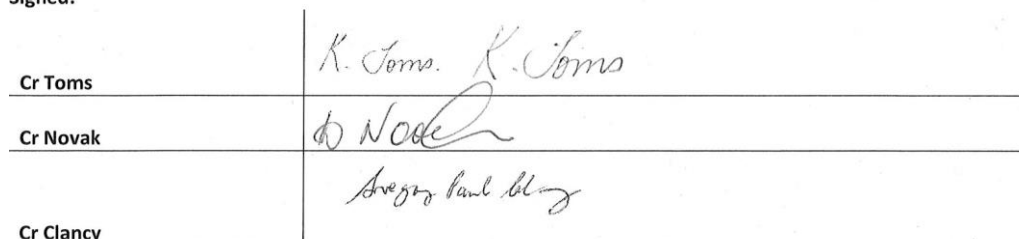 Signed:
Cr Toms K. Toms. K. Toms
Cr Novak D Novak
Cr Clancy Gregory Paul Clancy